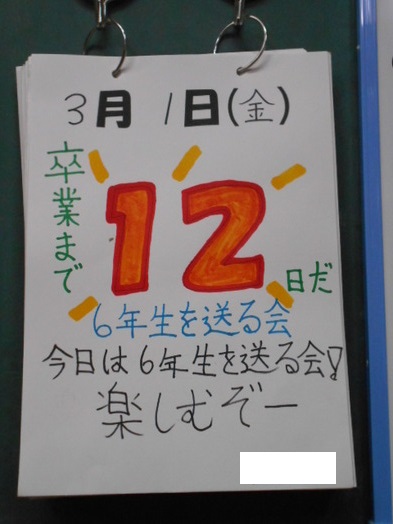 3月 1日(金)
卒業まで
12
日だ
6年生を送る会
今日は6年生を送る会!
楽しむぞー